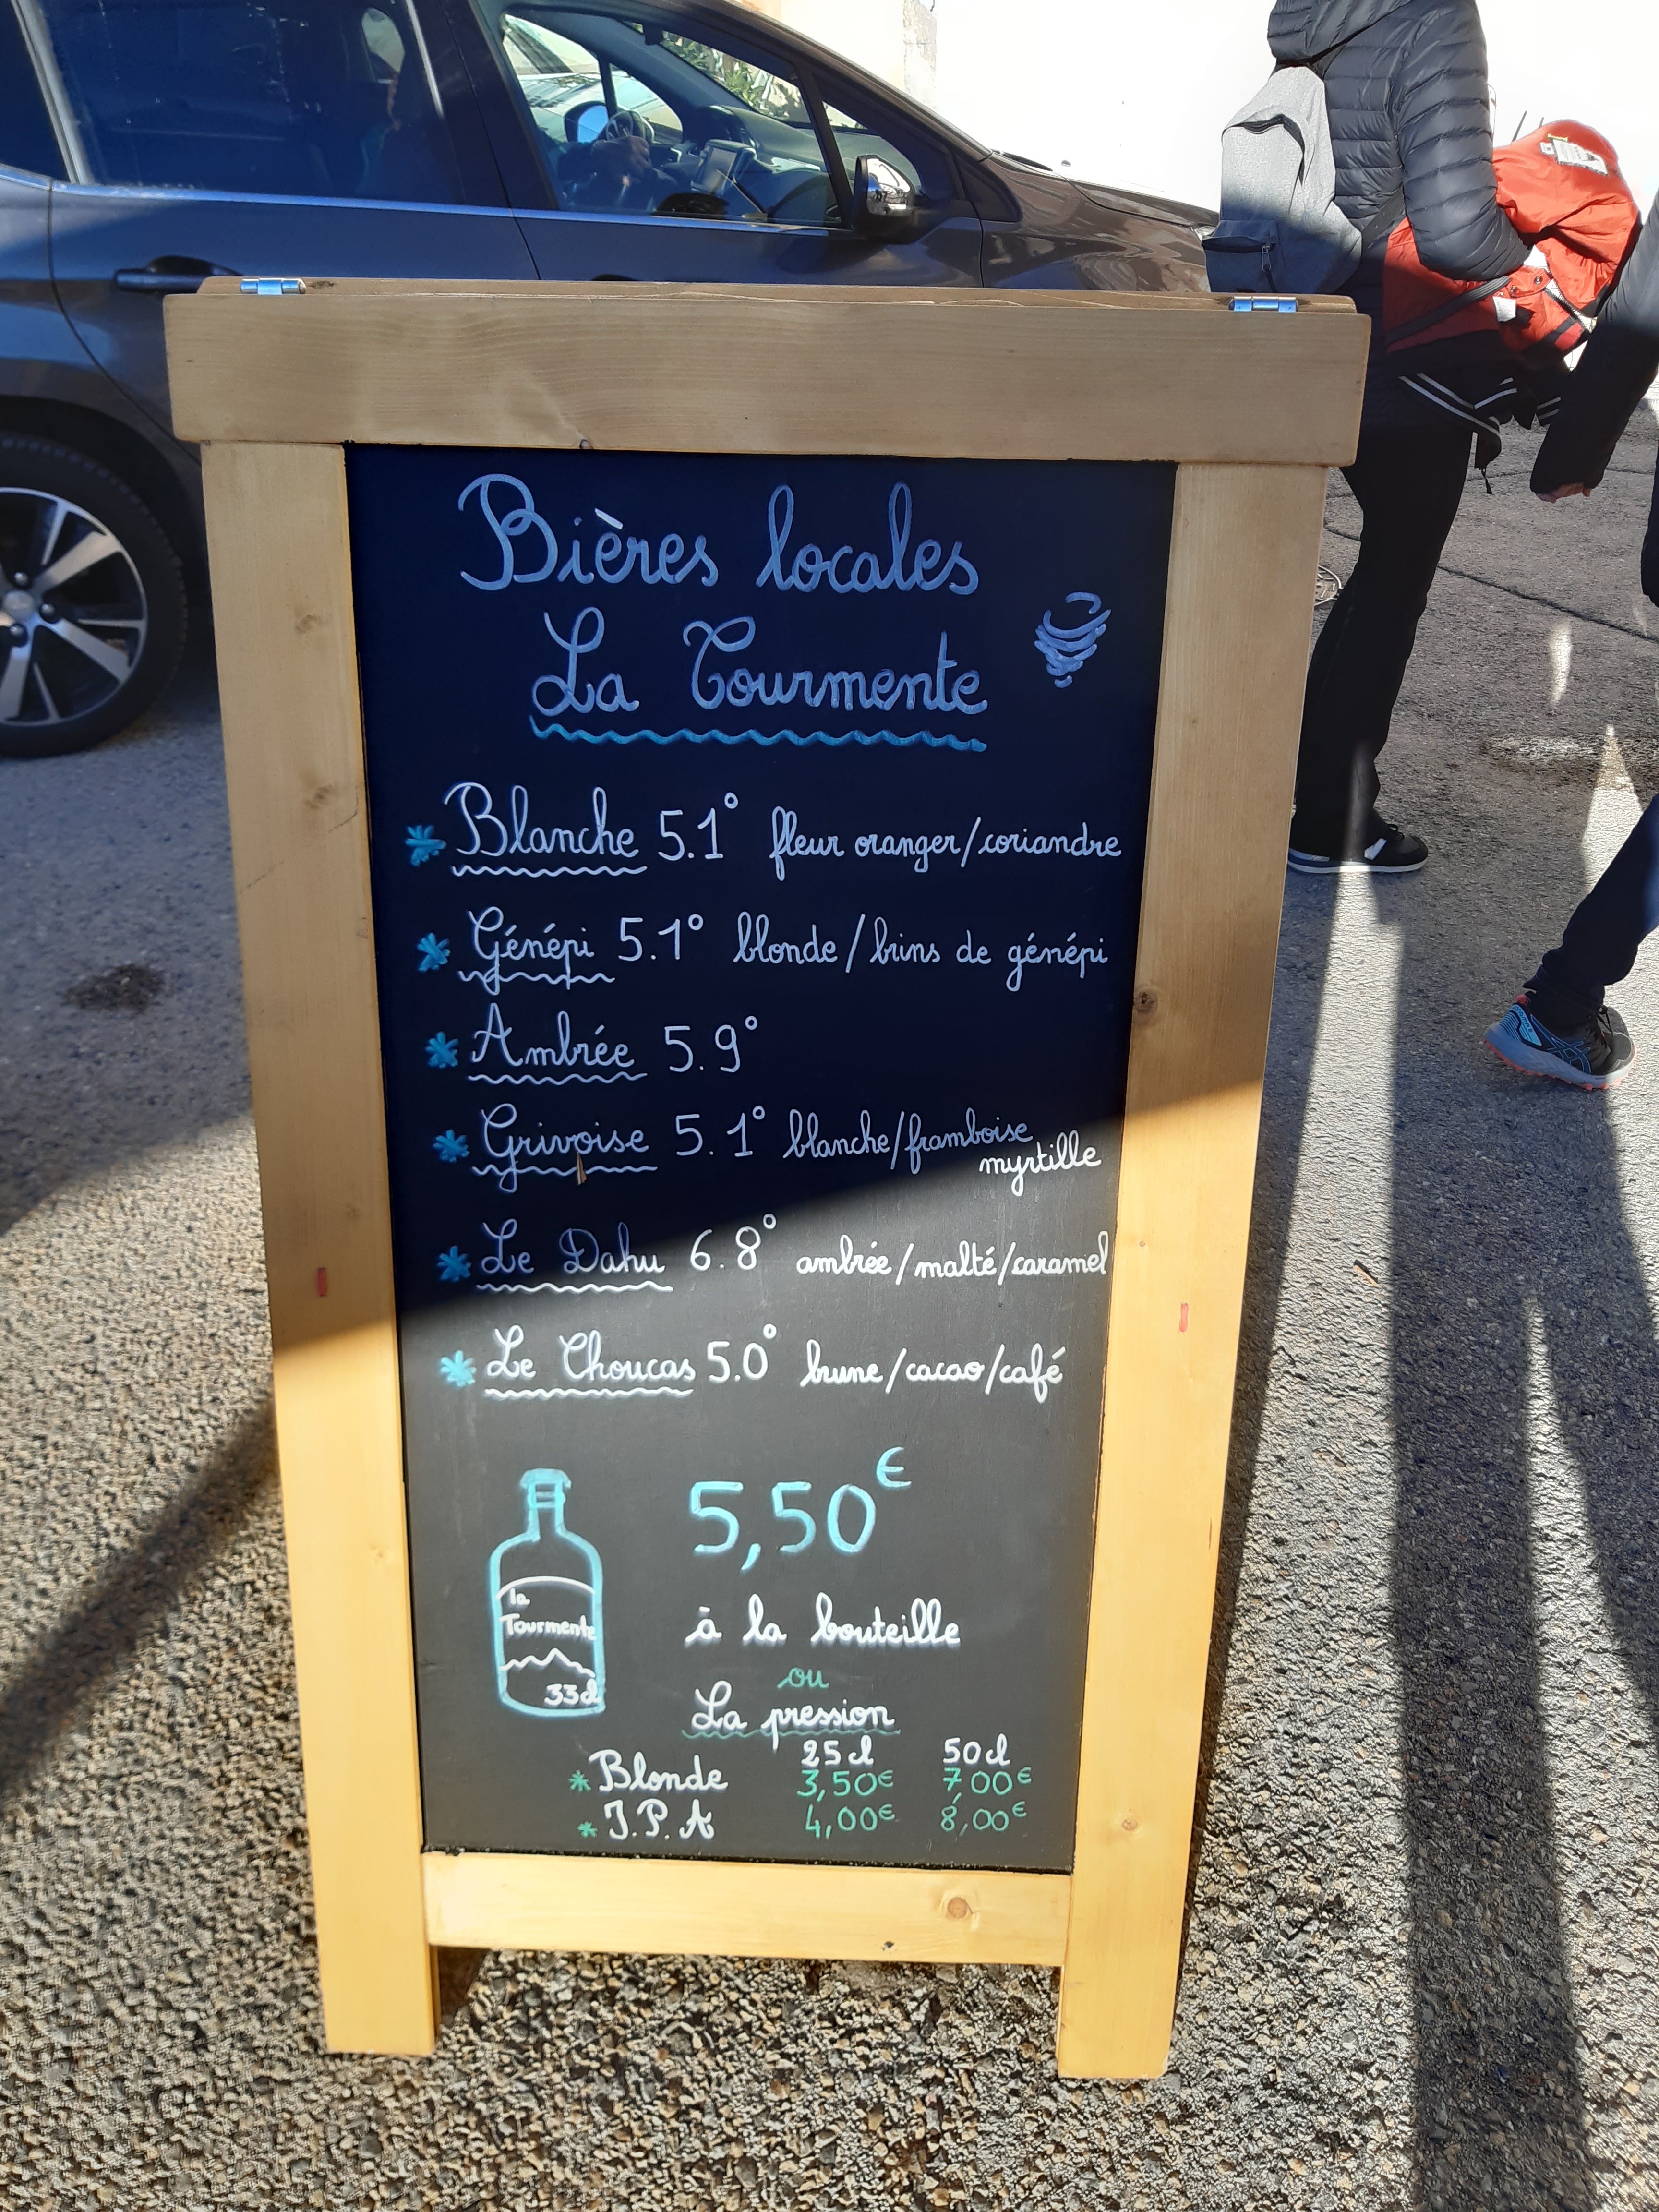 Bières locales
La Tourmente
* Blanche 5.1° fleur oranger/coriandre
* Génépi 5.1° blonde/brins de génépi
* Ambrée 5.9°
* Grivoise 5.1° blanche/framboise
myrtille
* Le Dahu 6.8° ambrée/malté/caramel
* Le Choucas 5.0° brune/cacao/café
5,50€
à la bouteille
la
Tourmente
33cl
ou
La pression
25cl 50cl
* Blonde 3,50€ 7,00€
* I.P.A 4,00€ 8,00€